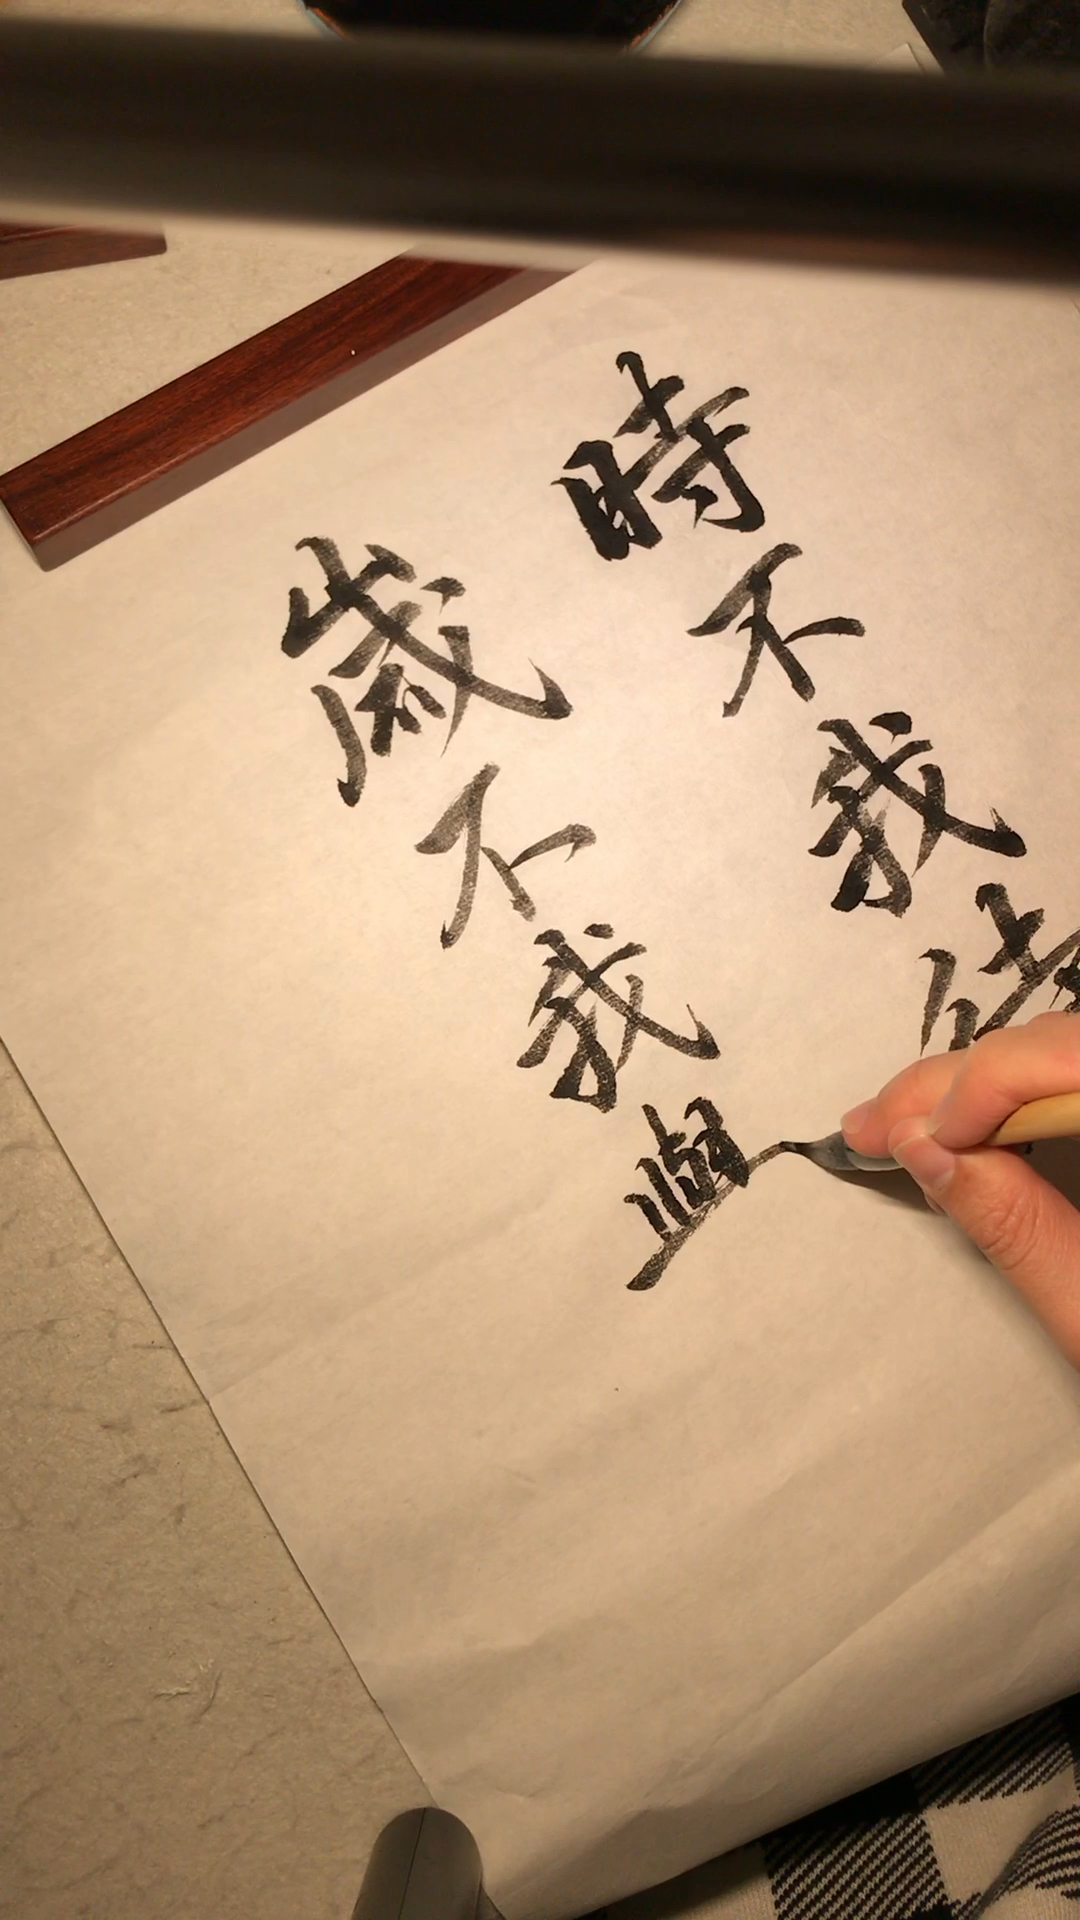 時不我待
歲不我與